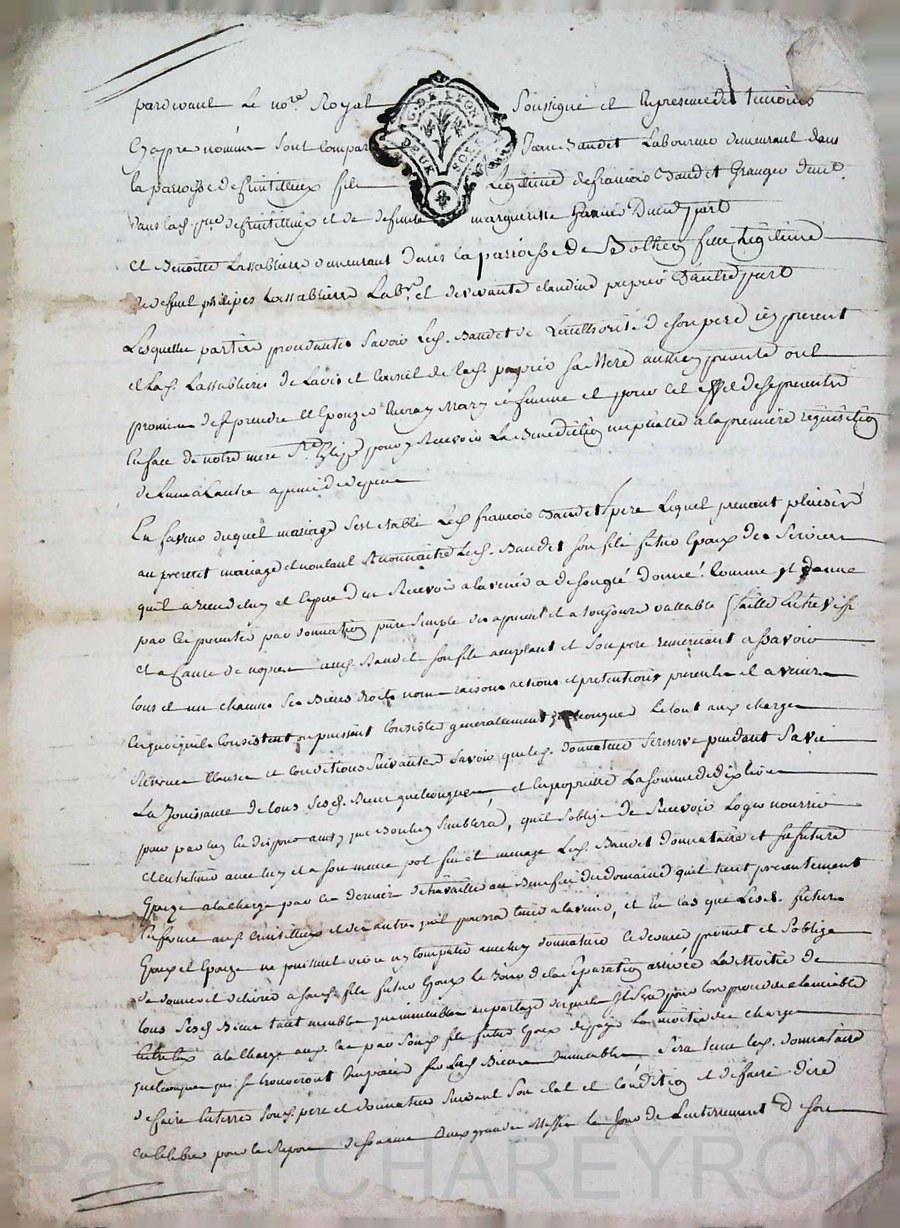 pardevant Le no.re Royal Soussigné et En presence des temoins
G. DE LYON
DEUX SOLS
Cy apres nommés Sont Comparus Jean Baudet Laboureur demeurant dans
la paroisse de fils Legitime de françois Baudet Granger dem.t
dans lad. p.sse de et de defunte marguerite D'une part
et Benoitte Lassablière demeurant dans la paroisse de fille Legitime
de defunt philipes Lassablierre Lab.r et de vivante claudine D'autre part
Lesquelles parties procedantes Savoir Led. Baudet de L'authorité de son pere icy present
et Lad. Lassabliere de L'avis et Conseil de lad. sa Mere aussy presente ont
promis de se prendre et Epouser En vray Mary et femme et pour cet effet de se presenter
En face de notre mere S.te Eglise pour y Recevoir La Benediction nuptialle a la premiere requisition
de L'une a L'autre a peine de depens
En faveur duquel mariage s'est etably Led. françois Baudet pere Lequel prenant plaisir
au present mariage et voulant Reconnaitre Led. Baudet son fils futur Epoux des Services
qu'il a rendu et Espere d'en Recevoir a lavenir a de son gré donné Comme il donne
par Ces presentes par donnation pure Simple des apresent et a toujours vallable faitte Entre vifs
et a Cause de nopces aud. Baudet son fils acceptant et Son pere remerciant a Savoir
tous et un chacuns Ses Biens droits noms raisons actions et pretentions presents et avenir
En quoi qu'ils Consistent ou puissent Consister generallement quelconques Le tout aux charges
Reserves Clauses et Conditions Suivantes Savoir que led. donnateur Se reserve pendant Sa vie
La Jouissance de tous Sesd. Biens quelconques et En proprieté La Somme de dix livres
pour par luy En disposer ainsy que Bon luy Semblera, qu'il S'oblige de Recevoir Loger nourrir
et entretenir avec luy et a son meme pot feu et menage Led. Baudet donnataire et sa future
Epouse a la charge par Ce dernier de travailler au Benefice du domaine qu'il tient presentement
En ferme aud. et des autres qu'il pourra tenir a lavenir, et En Cas que Lesd. futurs
Epoux et Epouse ne puissent vivre n'y Compatir avec led. donnateur Ce dernier promet et S'oblige
de donner et delivrer a son d. fils futur Epoux Le Jour de la Separation arrivée La Moitié de
tous Sesd. Biens tant meubles qu'immeubles au partage desquels Il Sera pour lors procedé a lamiable
Entre Eux a la charge aussy par Sond. fils futur Epoux de payer La moitié des Charges
quelconques qui se trouveront Imposées Sur Lesd. Biens Immeubles Sera tenu led. donnataire
de faire Enterrer Sond. pere et donnateur Suivant Son etat et Condition et de faire dire
et Celebrer pour le Repos de Son ame deux grandes Messes le Jour de L'enterrement d. Son
Pascal CHAREYRON